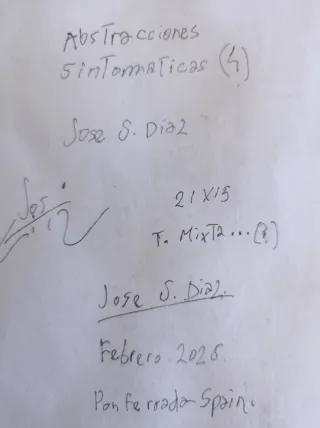 Abstracciones
Sintomaticas (4)
Jose S. Diaz
21 X 15
T. Mixta ... (?)
Jose S. Diaz.
Febrero 2026.
Ponferrada-Spain.